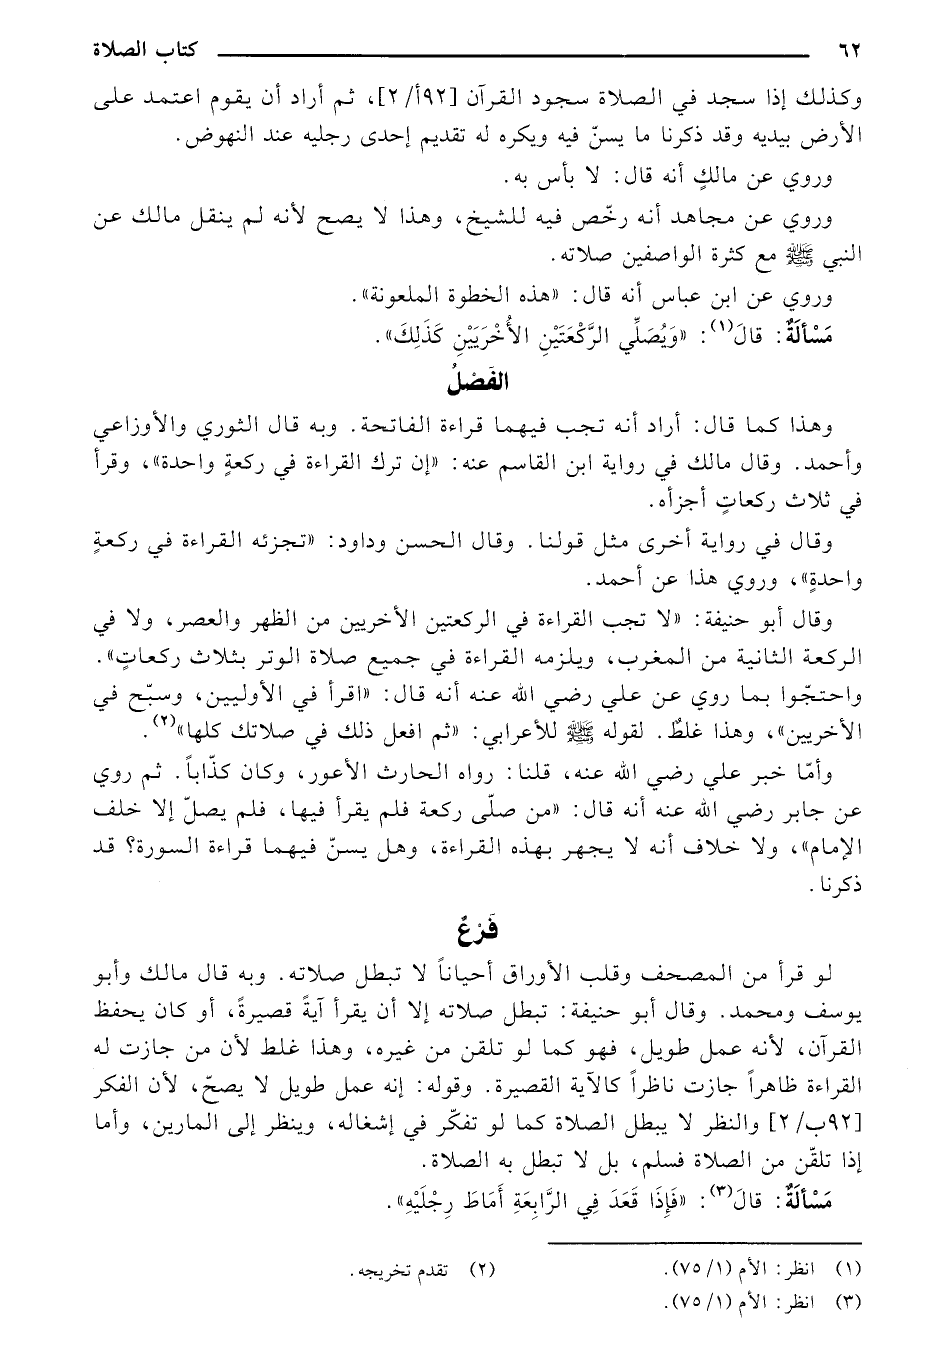 ٦٢ كتاب الصلاة
وكذلك إذا سجد في الصلاة سجود القرآن [٩٢أ/ ٢]، ثم أراد أن يقوم اعتمد على
الأرض بيديه وقد ذكرنا ما يسنّ فيه ويكره له تقديم إحدى رجليه عند النهوض.
وروي عن مالكٍ أنه قال: لا بأس به.
وروي عن مجاهد أنه رخّص فيه للشيخ، وهذا لا يصح لأنه لم ينقل مالك عن
النبي ﷺ مع كثرة الواصفين صلاته.
وروي عن ابن عباس أنه قال: «هذه الخطوة الملعونة».
مَسْأَلَةٌ: قالَ(١): «وَيُصَلِّي الرَّكْعَتَيْنِ الأُخْرَيَيْنِ كَذَلِكَ».
الفَصْلُ
وهذا كما قال: أراد أنه تجب فيهما قراءة الفاتحة. وبه قال الثوري والأوزاعي
وأحمد. وقال مالك في رواية ابن القاسم عنه: «إن ترك القراءة في ركعةٍ واحدة»، وقرأ
في ثلاث ركعاتٍ أجزأه.
وقال في رواية أخرى مثل قولنا. وقال الحسن وداود: «تجزئه القراءة في ركعةٍ
واحدةٍ»، وروي هذا عن أحمد.
وقال أبو حنيفة: «لا تجب القراءة في الركعتين الأخريين من الظهر والعصر، ولا في
الركعة الثانية من المغرب، ويلزمه القراءة في جميع صلاة الوتر بثلاث ركعاتٍ».
واحتجّوا بما روي عن علي رضي الله عنه أنه قال: «اقرأ في الأوليين، وسبّح في
الأخريين»، وهذا غلطٌ. لقوله ﷺ للأعرابي: «ثم افعل ذلك في صلاتك كلها»(٢).
وأمّا خبر علي رضي الله عنه، قلنا: رواه الحارث الأعور، وكان كذّاباً. ثم روي
عن جابر رضي الله عنه أنه قال: «من صلّى ركعة فلم يقرأ فيها، فلم يصلّ إلا خلف
الإمام»، ولا خلاف أنه لا يجهر بهذه القراءة، وهل يسنّ فيهما قراءة السورة؟ قد
ذكرنا.
فَرْعٌ
لو قرأ من المصحف وقلب الأوراق أحياناً لا تبطل صلاته. وبه قال مالك وأبو
يوسف ومحمد. وقال أبو حنيفة: تبطل صلاته إلا أن يقرأ آيةً قصيرةً، أو كان يحفظ
القرآن، لأنه عمل طويل، فهو كما لو تلقن من غيره، وهذا غلط لأن من جازت له
القراءة ظاهراً جازت ناظراً كالآية القصيرة. وقوله: إنه عمل طويل لا يصحّ، لأن الفكر
[٩٢ب/ ٢] والنظر لا يبطل الصلاة كما لو تفكّر في إشغاله، وينظر إلى المارين، وأما
إذا تلقّن من الصلاة فسلم، بل لا تبطل به الصلاة.
مَسْأَلَةٌ: قالَ(٣): «فَإِذَا قَعَدَ فِي الرَّابِعَةِ أَمَاطَ رِجْلَيْهِ».
(١) انظر: الأم (١/ ٧٥). (٢) تقدم تخريجه.
(٣) انظر: الأم (١/ ٧٥).